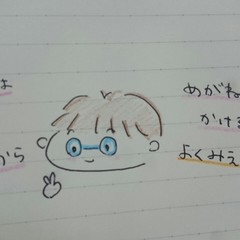 は
から
めがね
かける
よくみえ